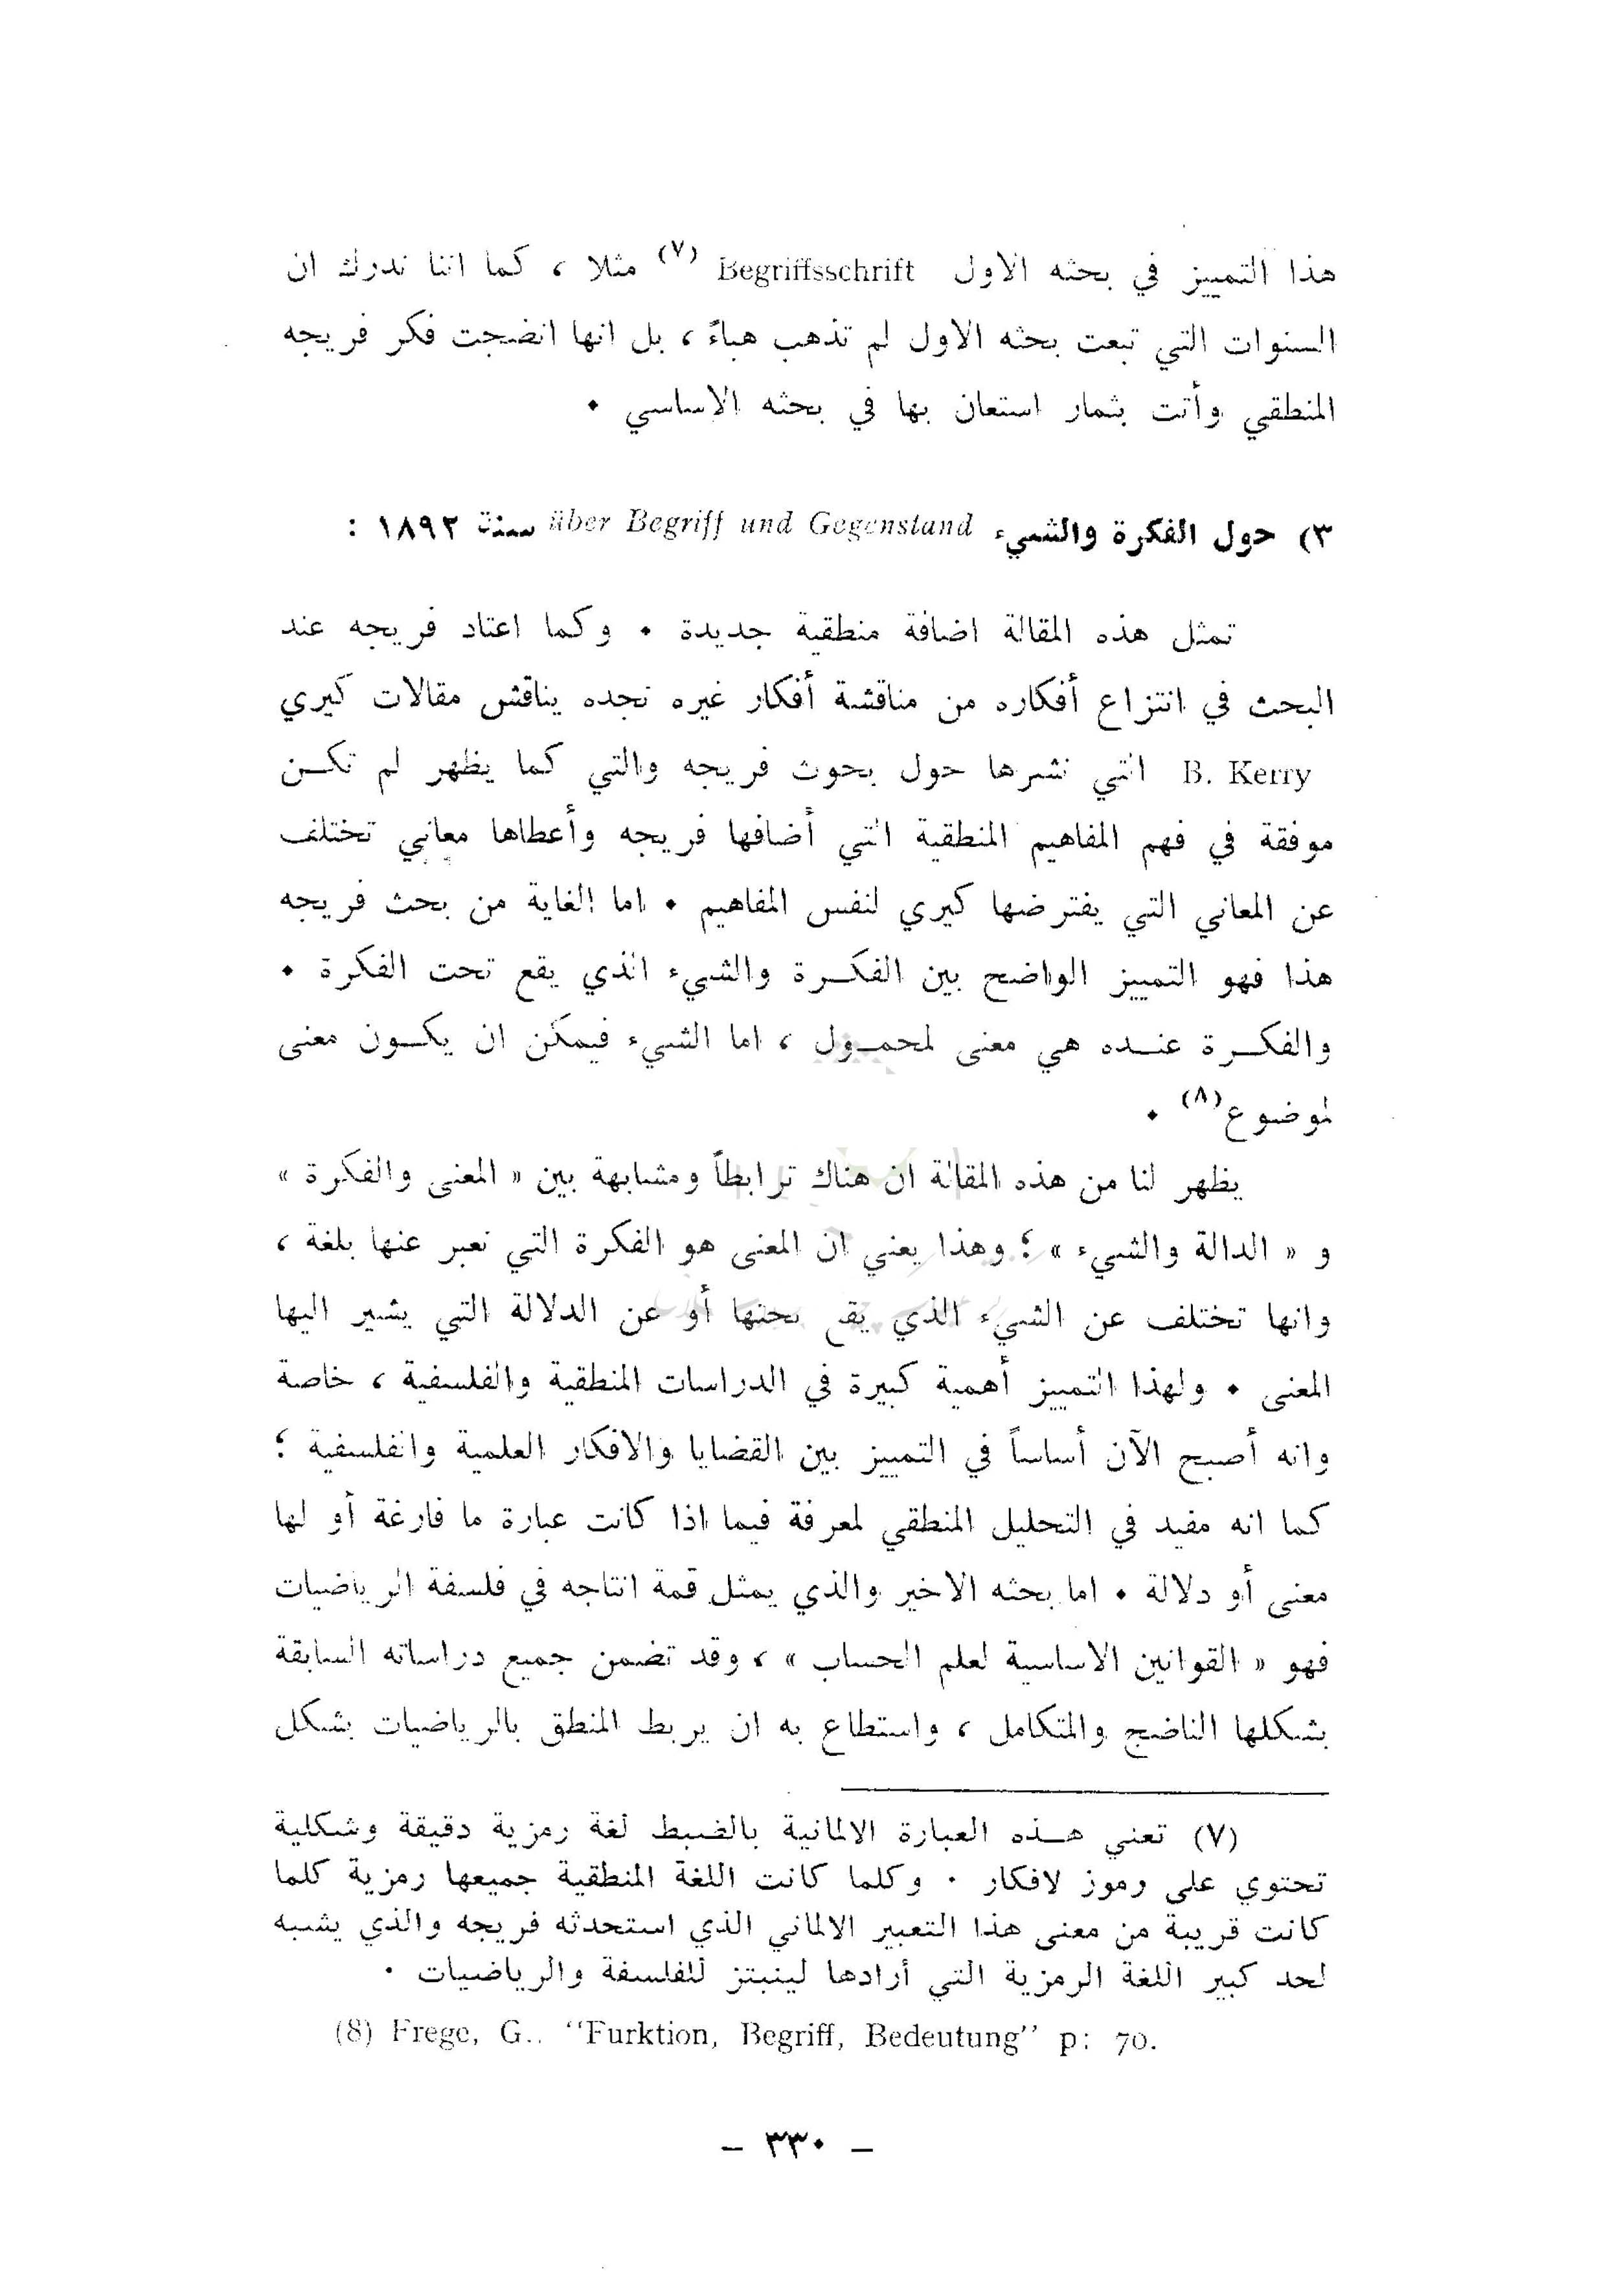 هذا التمييز في بحثه الاول Begriffsschrift (٧) مثلا ، كما اننا ندرك ان
السنوات التي تبعت بحثه الاول لم تذهب هباءً ، بل انها انضجت فكر فريجه
المنطقي وأتت بثمار استعان بها في بحثه الاساسي ٠
٣) حول الفكرة والشيء über Begriff und Gegenstand سنة ١٨٩٢ :
تمثل هذه المقالة اضافة منطقية جديدة ٠ وكما اعتاد فريجه عند
البحث في انتزاع أفكاره من مناقشة أفكار غيره نجده يناقش مقالات كيري
B. Kerry التي نشرها حول بحوث فريجه والتي كما يظهر لم تكـن
موفقة في فهم المفاهيم المنطقية التي أضافها فريجه وأعطاها معاني تختلف
عن المعاني التي يفترضها كيري لنفس المفاهيم ٠ اما الغاية من بحث فريجه
هذا فهو التمييز الواضح بين الفكـرة والشيء الذي يقع تحت الفكرة ٠
والفكـرة عنـده هي معنى لمحمـول ، اما الشيء فيمكن ان يكـون معنى
لموضوع (٨) ٠
يظهر لنا من هذه المقالة ان هناك ترابطاً ومشابهة بين « المعنى والفكرة »
و « الدالة والشيء » ؛ وهذا يعني ان المعنى هو الفكرة التي نعبر عنها بلغة ،
وانها تختلف عن الشيء الذي يقع تحتها أو عن الدلالة التي يشير اليها
المعنى ٠ ولهذا التمييز أهمية كبيرة في الدراسات المنطقية والفلسفية ، خاصة
وانه أصبح الآن أساساً في التمييز بين القضايا والافكار العلمية والفلسفية ؛
كما انه مفيد في التحليل المنطقي لمعرفة فيما اذا كانت عبارة ما فارغة أو لها
معنى أو دلالة ٠ اما بحثه الاخير والذي يمثل قمة انتاجه في فلسفة الرياضيات
فهو « القوانين الاساسية لعلم الحساب » ، وقد تضمن جميع دراساته السابقة
بشكلها الناضج والمتكامل ، واستطاع به ان يربط المنطق بالرياضيات بشكل
(٧) تعني هـذه العبارة الالمانية بالضبط لغة رمزية دقيقة وشكلية
تحتوي على رموز لافكار ٠ وكلما كانت اللغة المنطقية جميعها رمزية كلما
كانت قريبة من معنى هذا التعبير الالماني الذي استحدثه فريجه والذي يشبه
لحد كبير اللغة الرمزية التي أرادها لينبتز للفلسفة والرياضيات ٠
(8) Frege, G.. "Furktion, Begriff, Bedeutung" p: 70.
— ٣٣٠ —